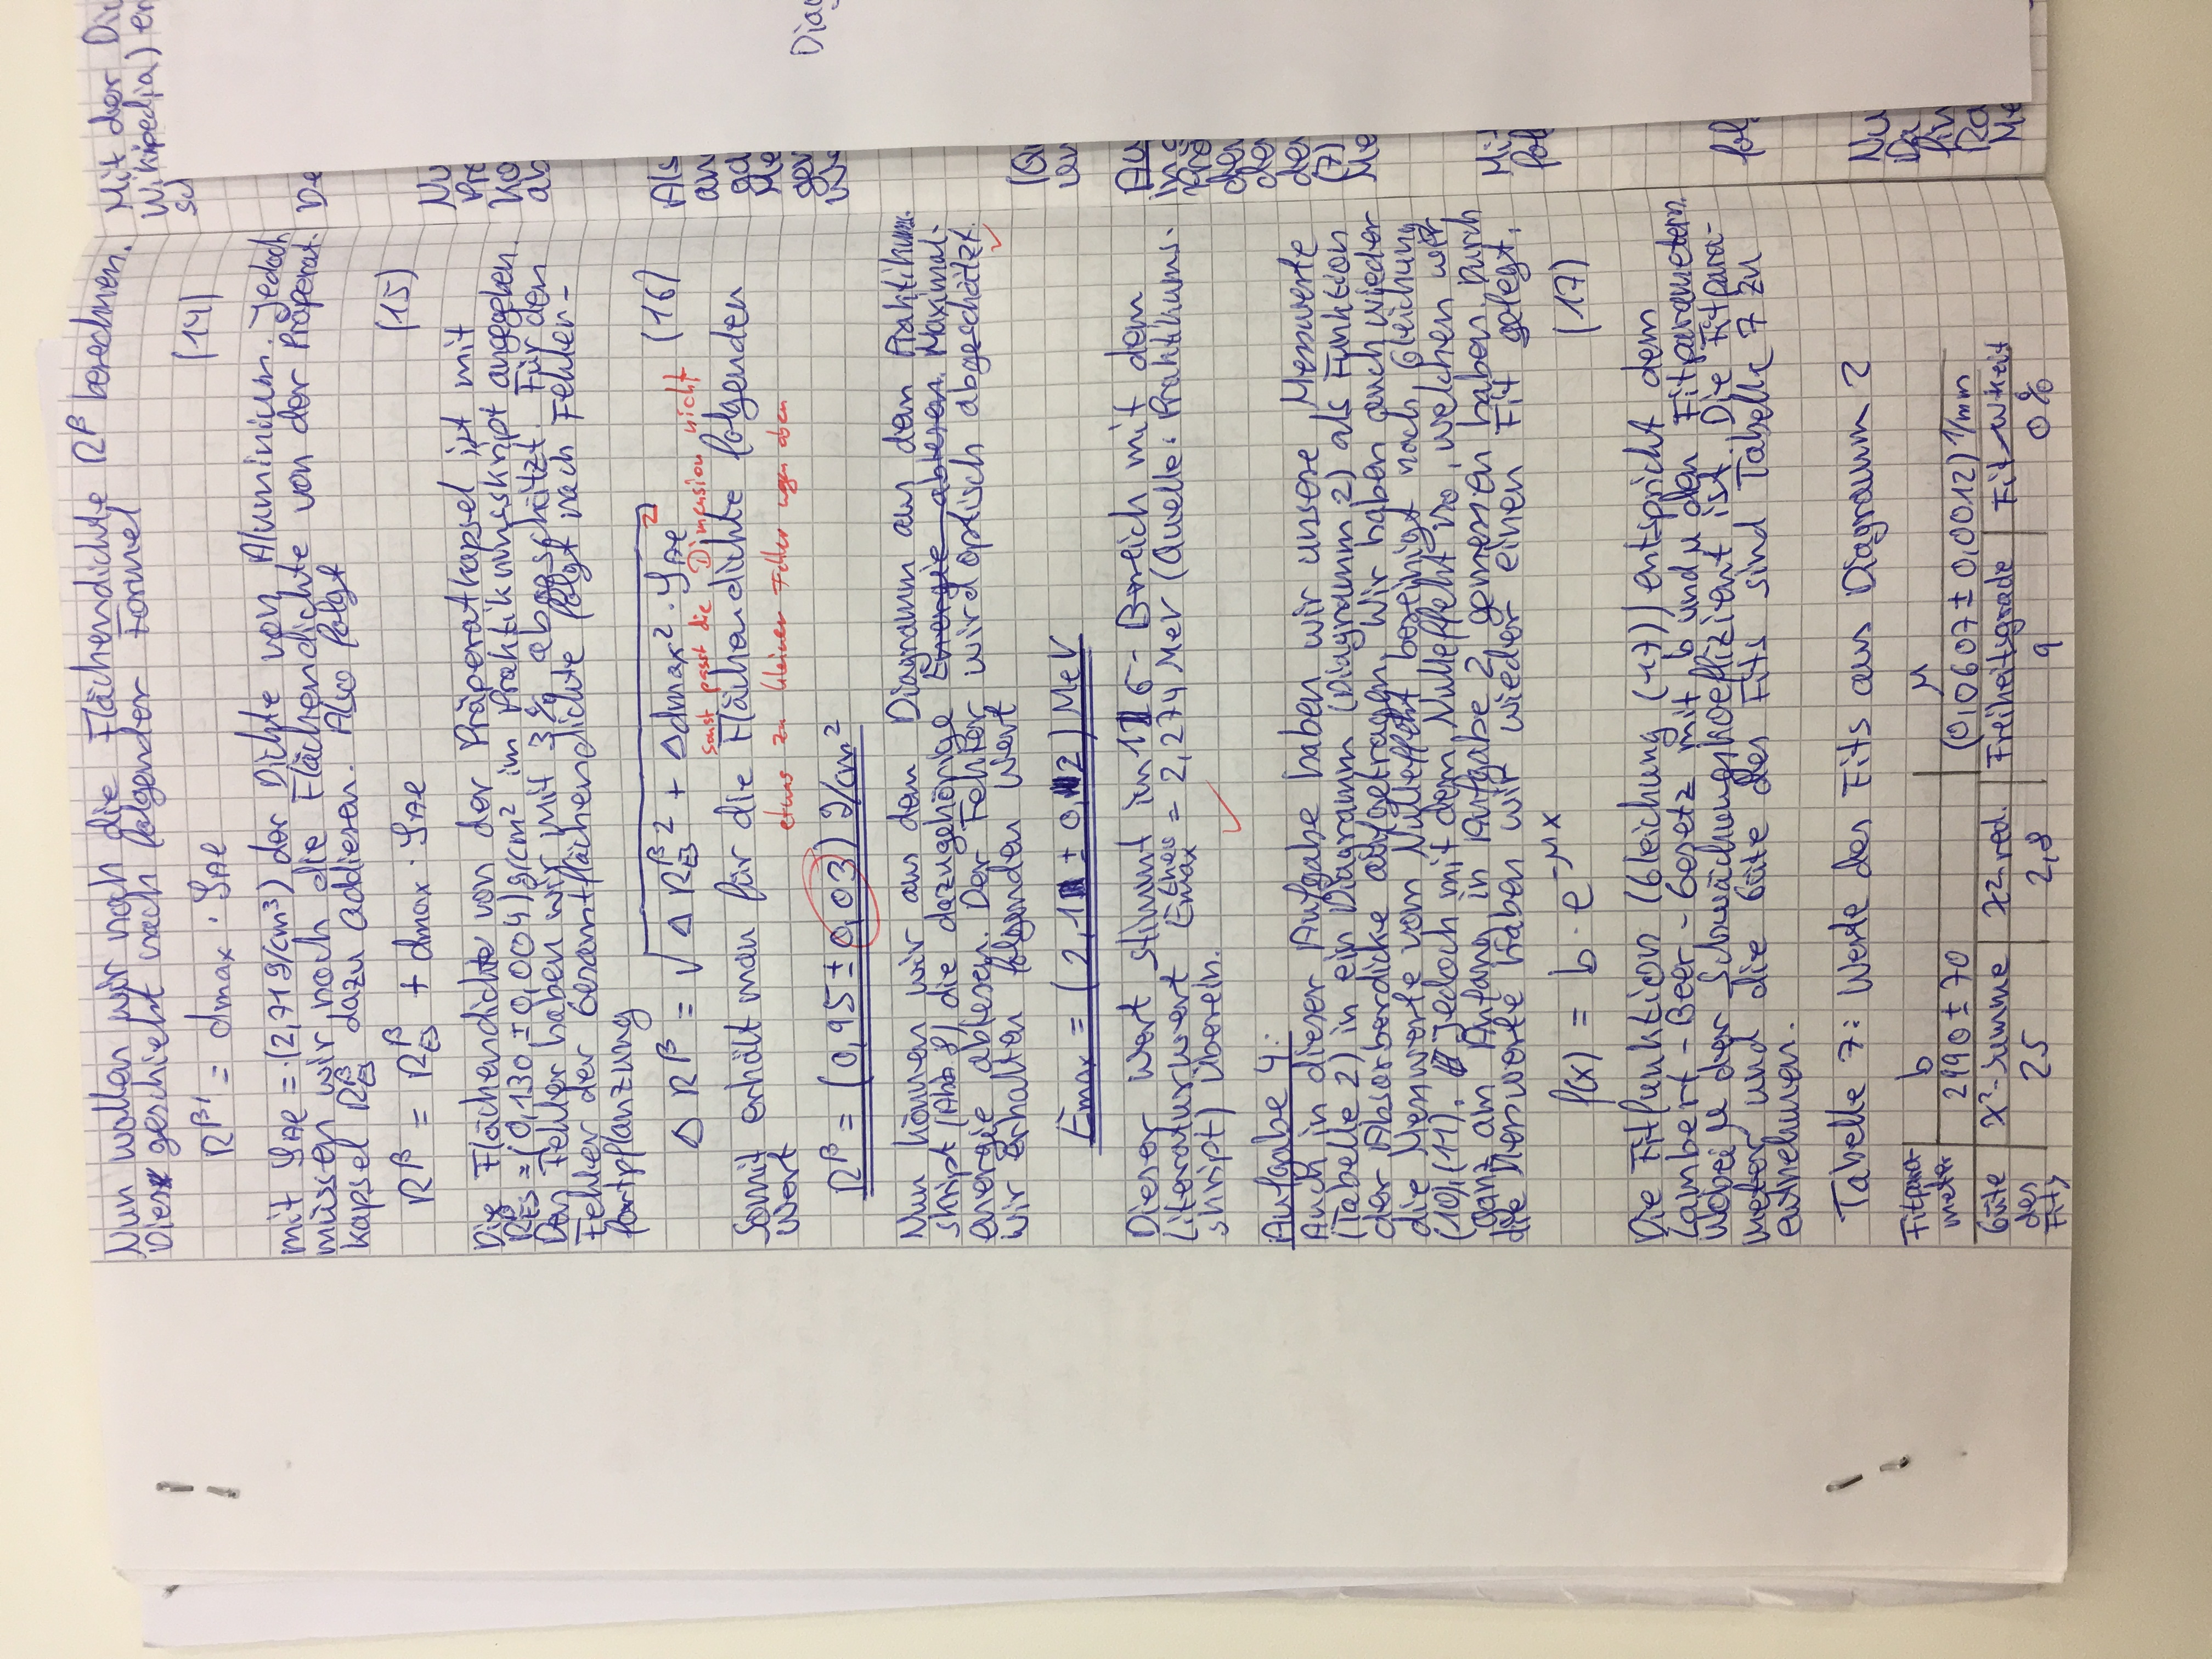 Nun wollen wir noch die Flächendichte Rᵝ berechnen.
Dies geschieht nach folgender Formel
Rᵝ' = dmax · ρAl (14)
mit ρAl = (2,71 g/cm³) der Dichte von Aluminium. Jedoch
müssen wir noch die Flächendichte von der Präperat-
kapsel Rᵝ_ES dazu addieren. Also folgt
Rᵝ = Rᵝ_ES + dmax · ρAl (15)
Die Flächendichte von der Präperatkapsel ist mit
Rᵝ_ES = (0,130 ± 0,004) g/cm² im Praktikumsskript angegeben.
Den Fehler haben wir mit 3% abgeschätzt. Für den
Fehler der Gesamtflächendichte folgt nach Fehler-
fortpflanzung
Δ Rᵝ = √(Δ Rᵝ_ES² + Δdmax² · ρAl²) (16)
sonst passt die Dimension nicht
Somit erhält man für die Flächendichte folgenden
Wert
etwas zu kleiner Fehler wegen oben
Rᵝ = (0,95 ± 0,03) g/cm²
Nun können wir aus dem Diagramm aus dem Praktikums-
skript (Abb. 8) die dazugehörige Energie ablesen. Maximal-
energie ablesen. Der Fehler wird optisch abgeschätzt.
Wir erhalten folgenden Wert
Emax = (2,1 ± 0,2) MeV
Dieser Wert stimmt im 1 σ-Bereich mit dem
Literaturwert E^theo_max = 2,274 MeV (Quelle: Praktikums-
skript) überein.
Aufgabe 4:
Auch in dieser Aufgabe haben wir unsere Messwerte
(Tabelle 2) in ein Diagramm (Diagramm 2) als Funktion
der Absorberdicke aufgetragen. Wir haben auch wieder
die Messwerte vom Nulleffekt bereinigt nach Gleichung
(10), (11). Jedoch mit dem Nulleffekt n₀, welchen wir
ganz am Anfang in Aufgabe 2 gemessen haben. Durch
die Messwerte haben wir wieder einen Fit gelegt.
f(x) = b · e^-μx (17)
Die Fitfunktion (Gleichung (17)) entspricht dem
Lambert-Beer-Gesetz mit b und μ den Fitparametern.
Wobei μ der Schwächungskoeffizient ist. Die Fitpara-
meter und die Güte des Fits sind Tabelle 7 zu
entnehmen.
Tabelle 7: Werte des Fits aus Diagramm 2
Fitpara- b μ
meter 2990 ± 70 (0,0607 ± 0,0012) 1/mm
Güte χ²-Summe χ² red. Freiheitsgrade Fit-Wkeit
des 25 2,8 9 0%
Fits
Mit der Di
Wikipedia) er
De
Nu
Als
an
Me
Diag
Au
(7)
Me
fol
fol
Nu
Me